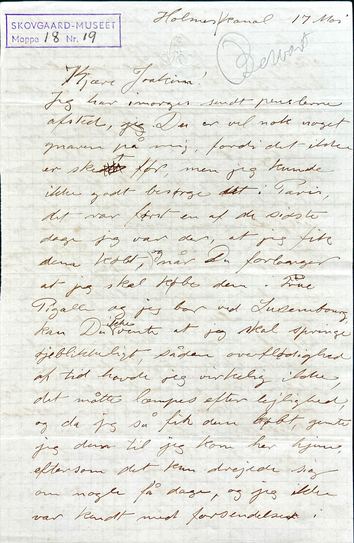 SKOVGAARD-MUSEET
Mappe 18 Nr. 19
Holmens Kanal 17 Mai
Besvart
Kjære Joakim!
Jeg har imorges sendt penslerne
afsted, jeg Du er vel nok noget
gnaven på mig, fordi det ikke
er sket før, men jeg kunde
ikke godt besørge det i Paris,
det var først en af de sidste
dage jeg var der, at jeg fik
dem købt, når Du forlanger
at jeg skal købe dem i Rue
Pigalle og jeg bor ved Luxembourg
kan Du ikke vente at jeg skal springe
øjeblikkeligt sådan overflødighed
af tid havde jeg virkelig ikke,
det måtte lempes efter lejlighed,
og da jeg så fik dem købt, gemte
jeg dem til jeg kom her hjem,
eftersom det kun drejede sig
om nogle få dage, og jeg ikke
var kendt med forsendelser i